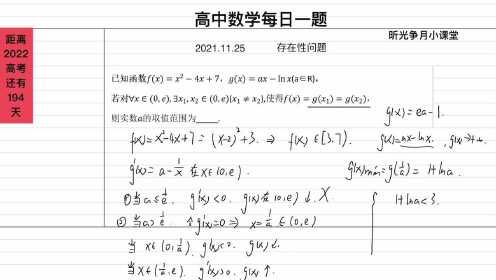 高中数学每日一题
昕光争月小课堂
距离
2022
高考
还有
194
天
2021.11.25 存在性问题
已知函数f(x) = x² − 4x + 7, g(x) = ax − ln x(a∈R),
若对∀x ∈ (0, e), ∃x₁, x₂ ∈ (0, e)(x₁ ≠ x₂),使得f(x) = g(x₁) = g(x₂),
则实数a的取值范围为____.
g(x) = ea-1.
f(x)=x²-4x+7 = (x-2)²+3. ⇒ f(x) ∈ [3,7).
g(x)=ax-lnx.
g'(x)= a - 1/x 在 x∈(0,e).
g(x)min = g(1/a) = 1+lna.
①当a≤1/e. g'(x)<0. g(x)在(0,e)↓. X
1+lna<3.
②当a>1/e. 令g'(x)=0 ⇒ x=1/a ∈(0,e)
当 x∈(0,1/a). g'(x)<0. g(x)↓.
当x∈(1/a,e). g'(x)>0. g(x)↑.